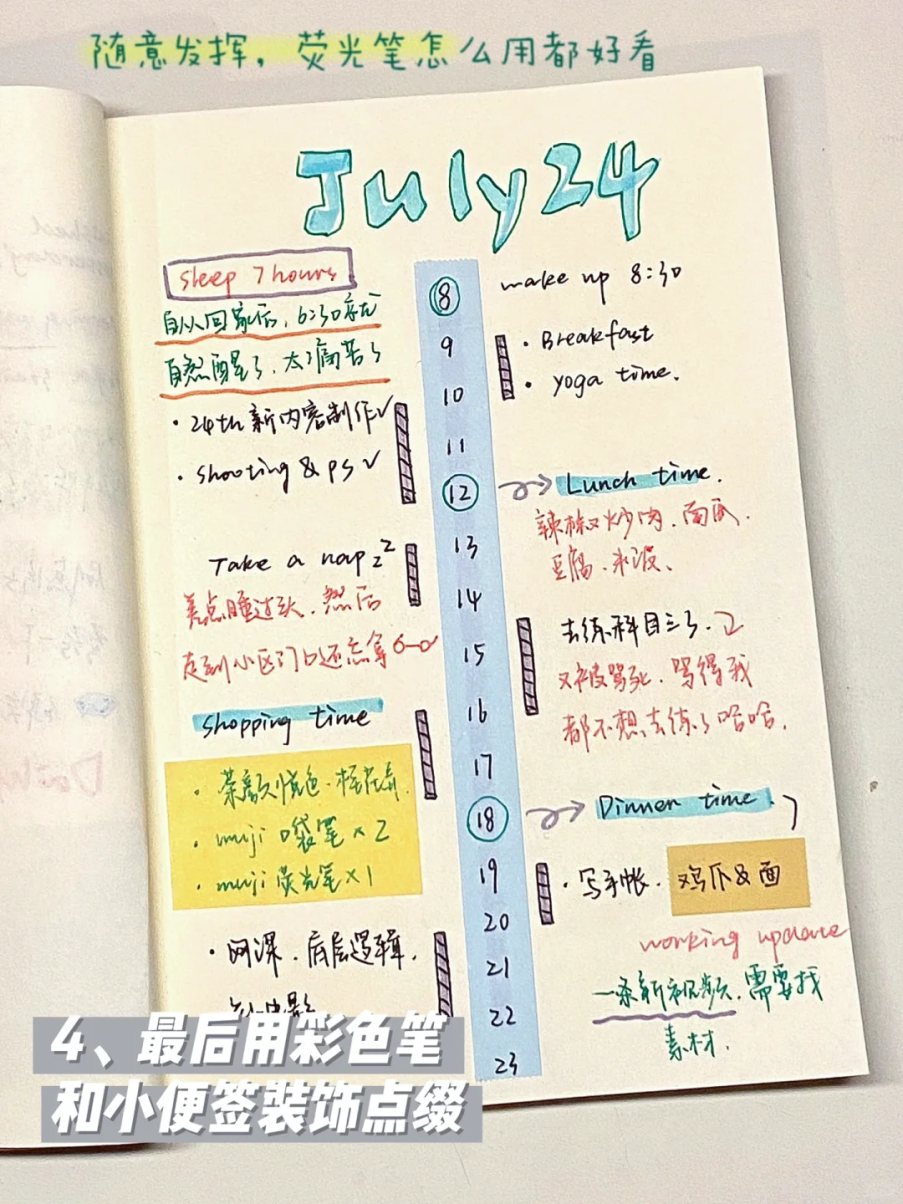 随意发挥，荧光笔怎么用都好看
July 24
sleep 7 hours
自从回家后，6:30就
自然醒了，太痛苦了
· 24th 新内容制作✓
· Shooting & ps✓
Take a nap z z
差点睡过头，然后
走到小区门口还忘拿
shopping time
· 茶颜悦色·桂花弄
· muji 口袋笔×2
· muji 荧光笔×1
· 网课．底层逻辑．
8
9
10
11
12
13
14
15
16
17
18
19
20
21
22
23
wake up 8:30
· Breakfast
· yoga time.
Lunch time.
辣椒炒肉．南瓜．
豆腐．米饭、
去练科目三了．
又被骂死，骂得我
都不想去练了哈哈．
Dinner time.
· 写手帐．鸡爪&面
working update
一条新视频．需要找
素材．
4、最后用彩色笔
和小便签装饰点缀